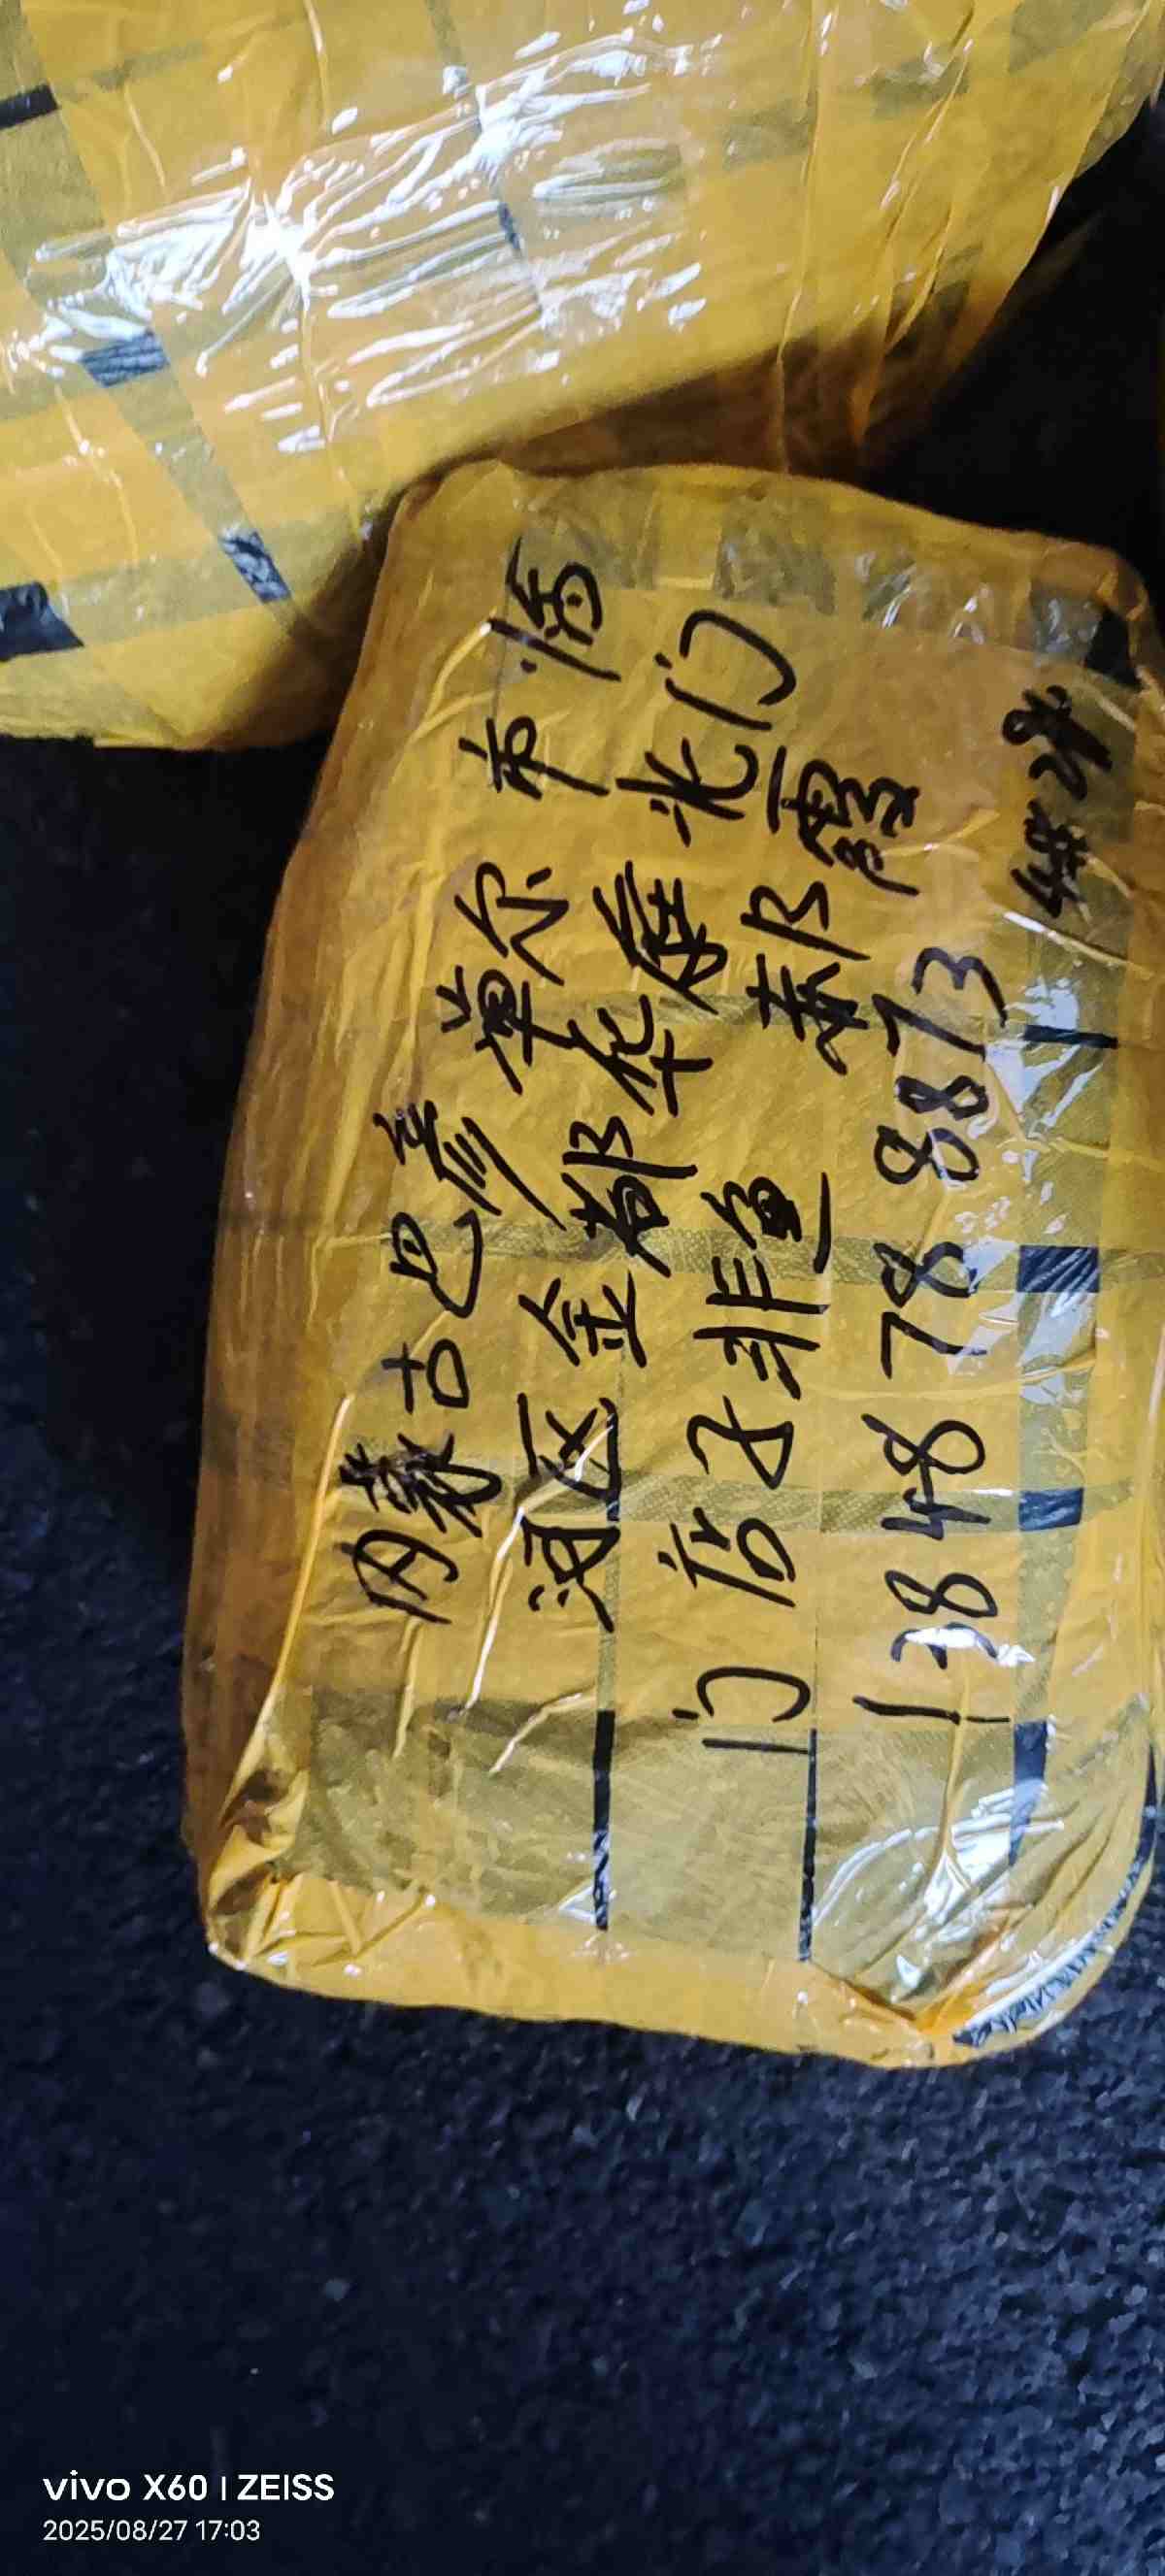 内蒙古巴彦淖尔市临
河区金都华庭北门
门店子非鱼 郝霞
13848788873
vivo X60 | ZEISS
2025/08/27 17:03